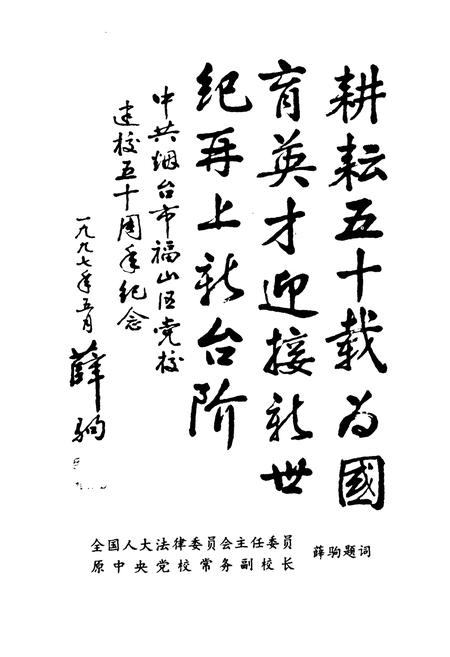 耕耘五十载为國
育英才迎接新世
纪再上新台阶
中共烟台市福山区党校
建校五十周年纪念
一九九七年五月
薛驹
全国人大法律委员会主任委员
原中央党校常务副校长
薛驹题词